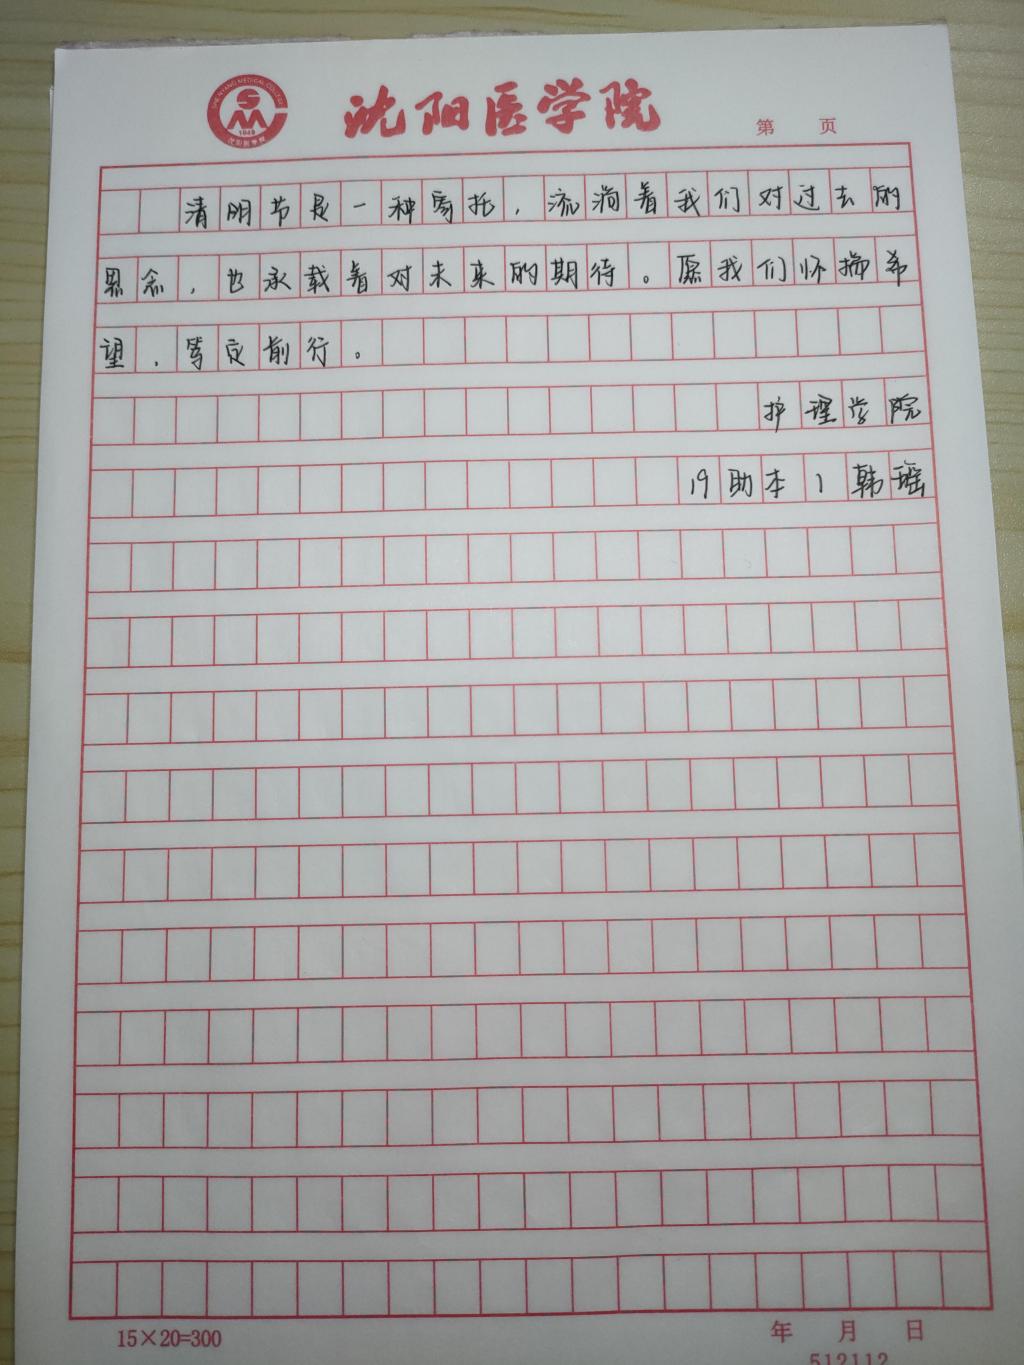 SHENYANG MEDICAL COLLEGE
SM
1949
沈阳医学院
沈阳医学院
第 页
清明节是一种寄托，流淌着我们对过去的
思念，也承载着对未来的期待。愿我们怀揣希
望，笃定前行。
护理学院
19助本1韩瑶
15×20=300
年 月 日
512112